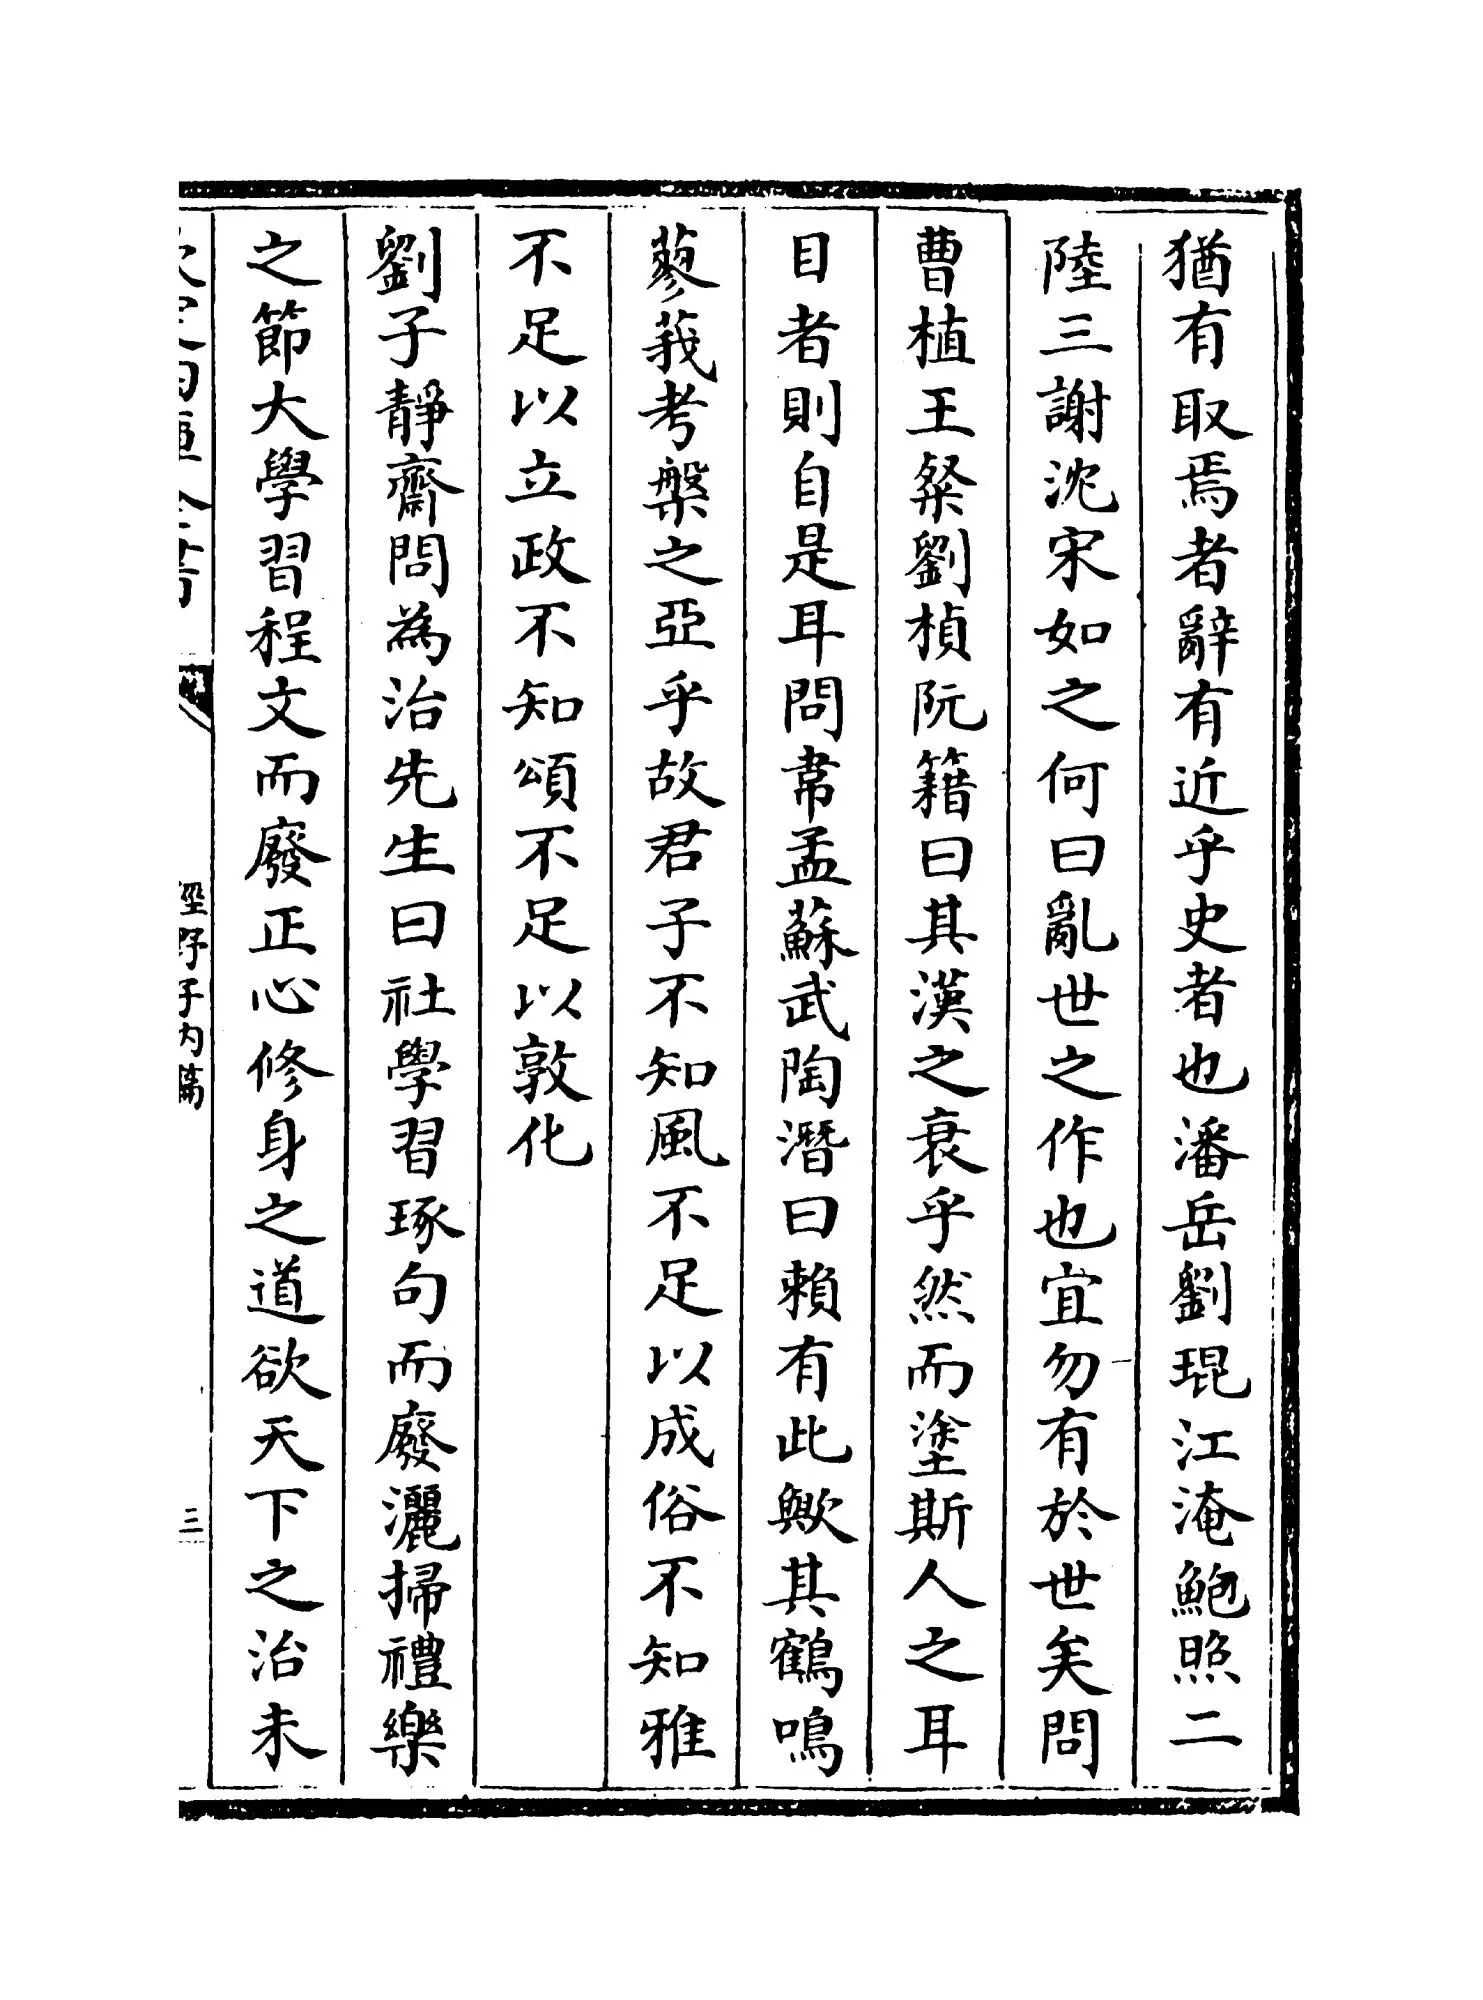 猶有取焉者辭有近乎史者也潘岳劉琨江淹鮑照二
陸三謝沈宋如之何曰亂世之作也宜勿有於世矣問
曹植王粲劉楨阮籍曰其漢之衰乎然而塗斯人之耳
目者則自是耳問韋孟蘇武陶潛曰賴有此歟其鶴鳴
蓼莪考槃之亞乎故君子不知風不足以成俗不知雅
不足以立政不知頌不足以敦化
劉子靜齋問為治先生曰社學習琢句而廢灑掃禮樂
之節大學習程文而廢正心修身之道欲天下之治未
欽定四庫全書
涇野子內篇
三